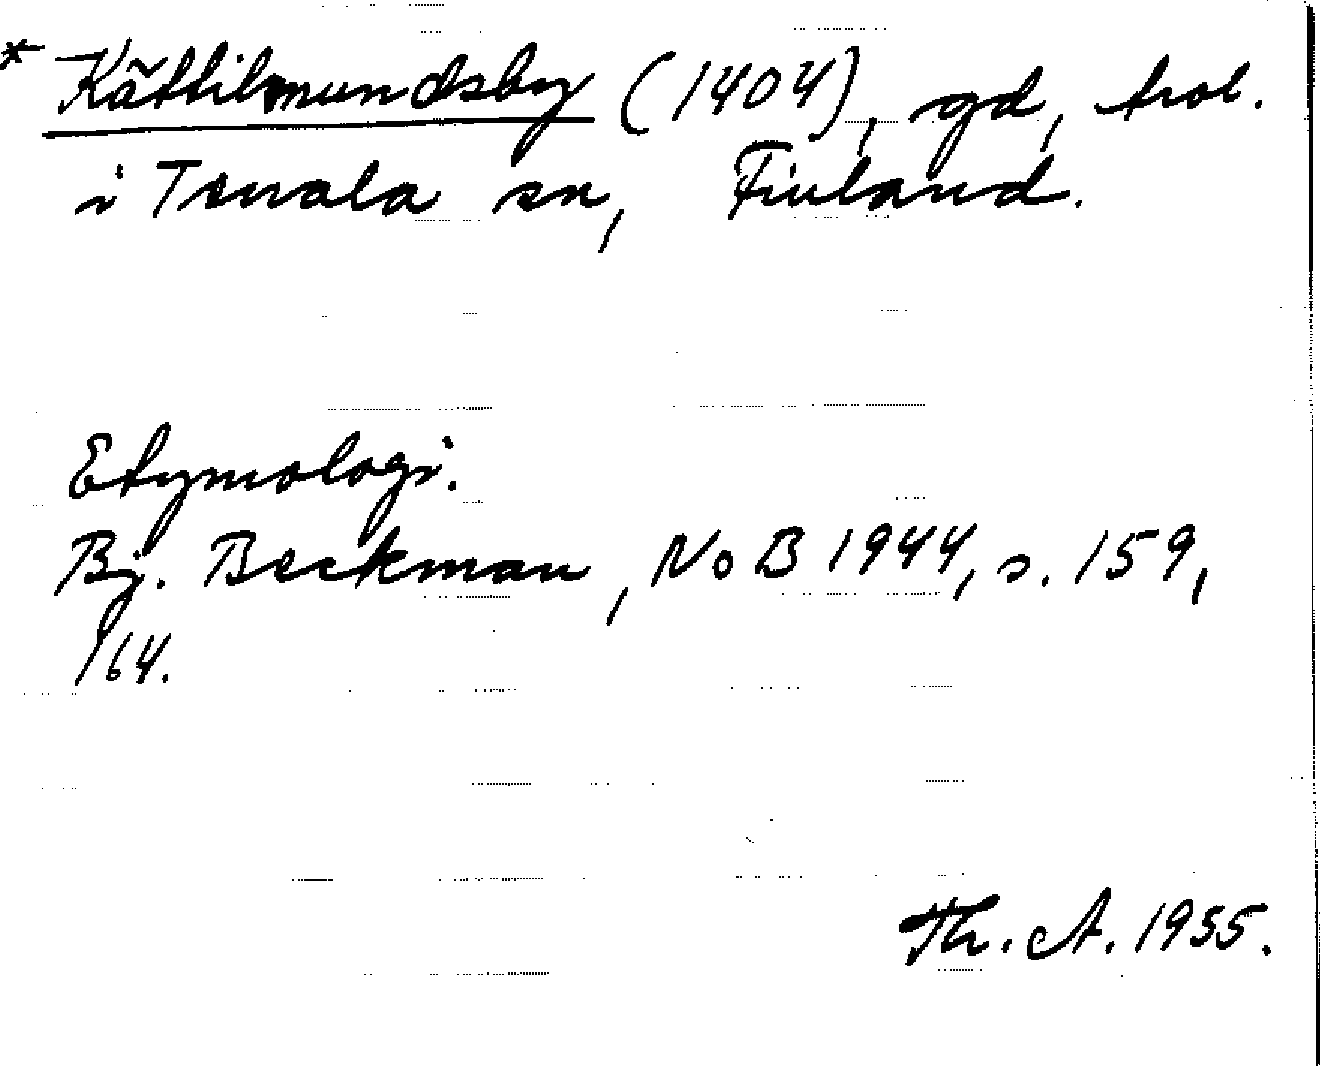 * Kättilmundsby (1404), gd, trol.
i Tenala sn, Finland.
Etymologi.
Bj. Beckman, NoB 1944, s. 159,
164.
Th. A. 1955.